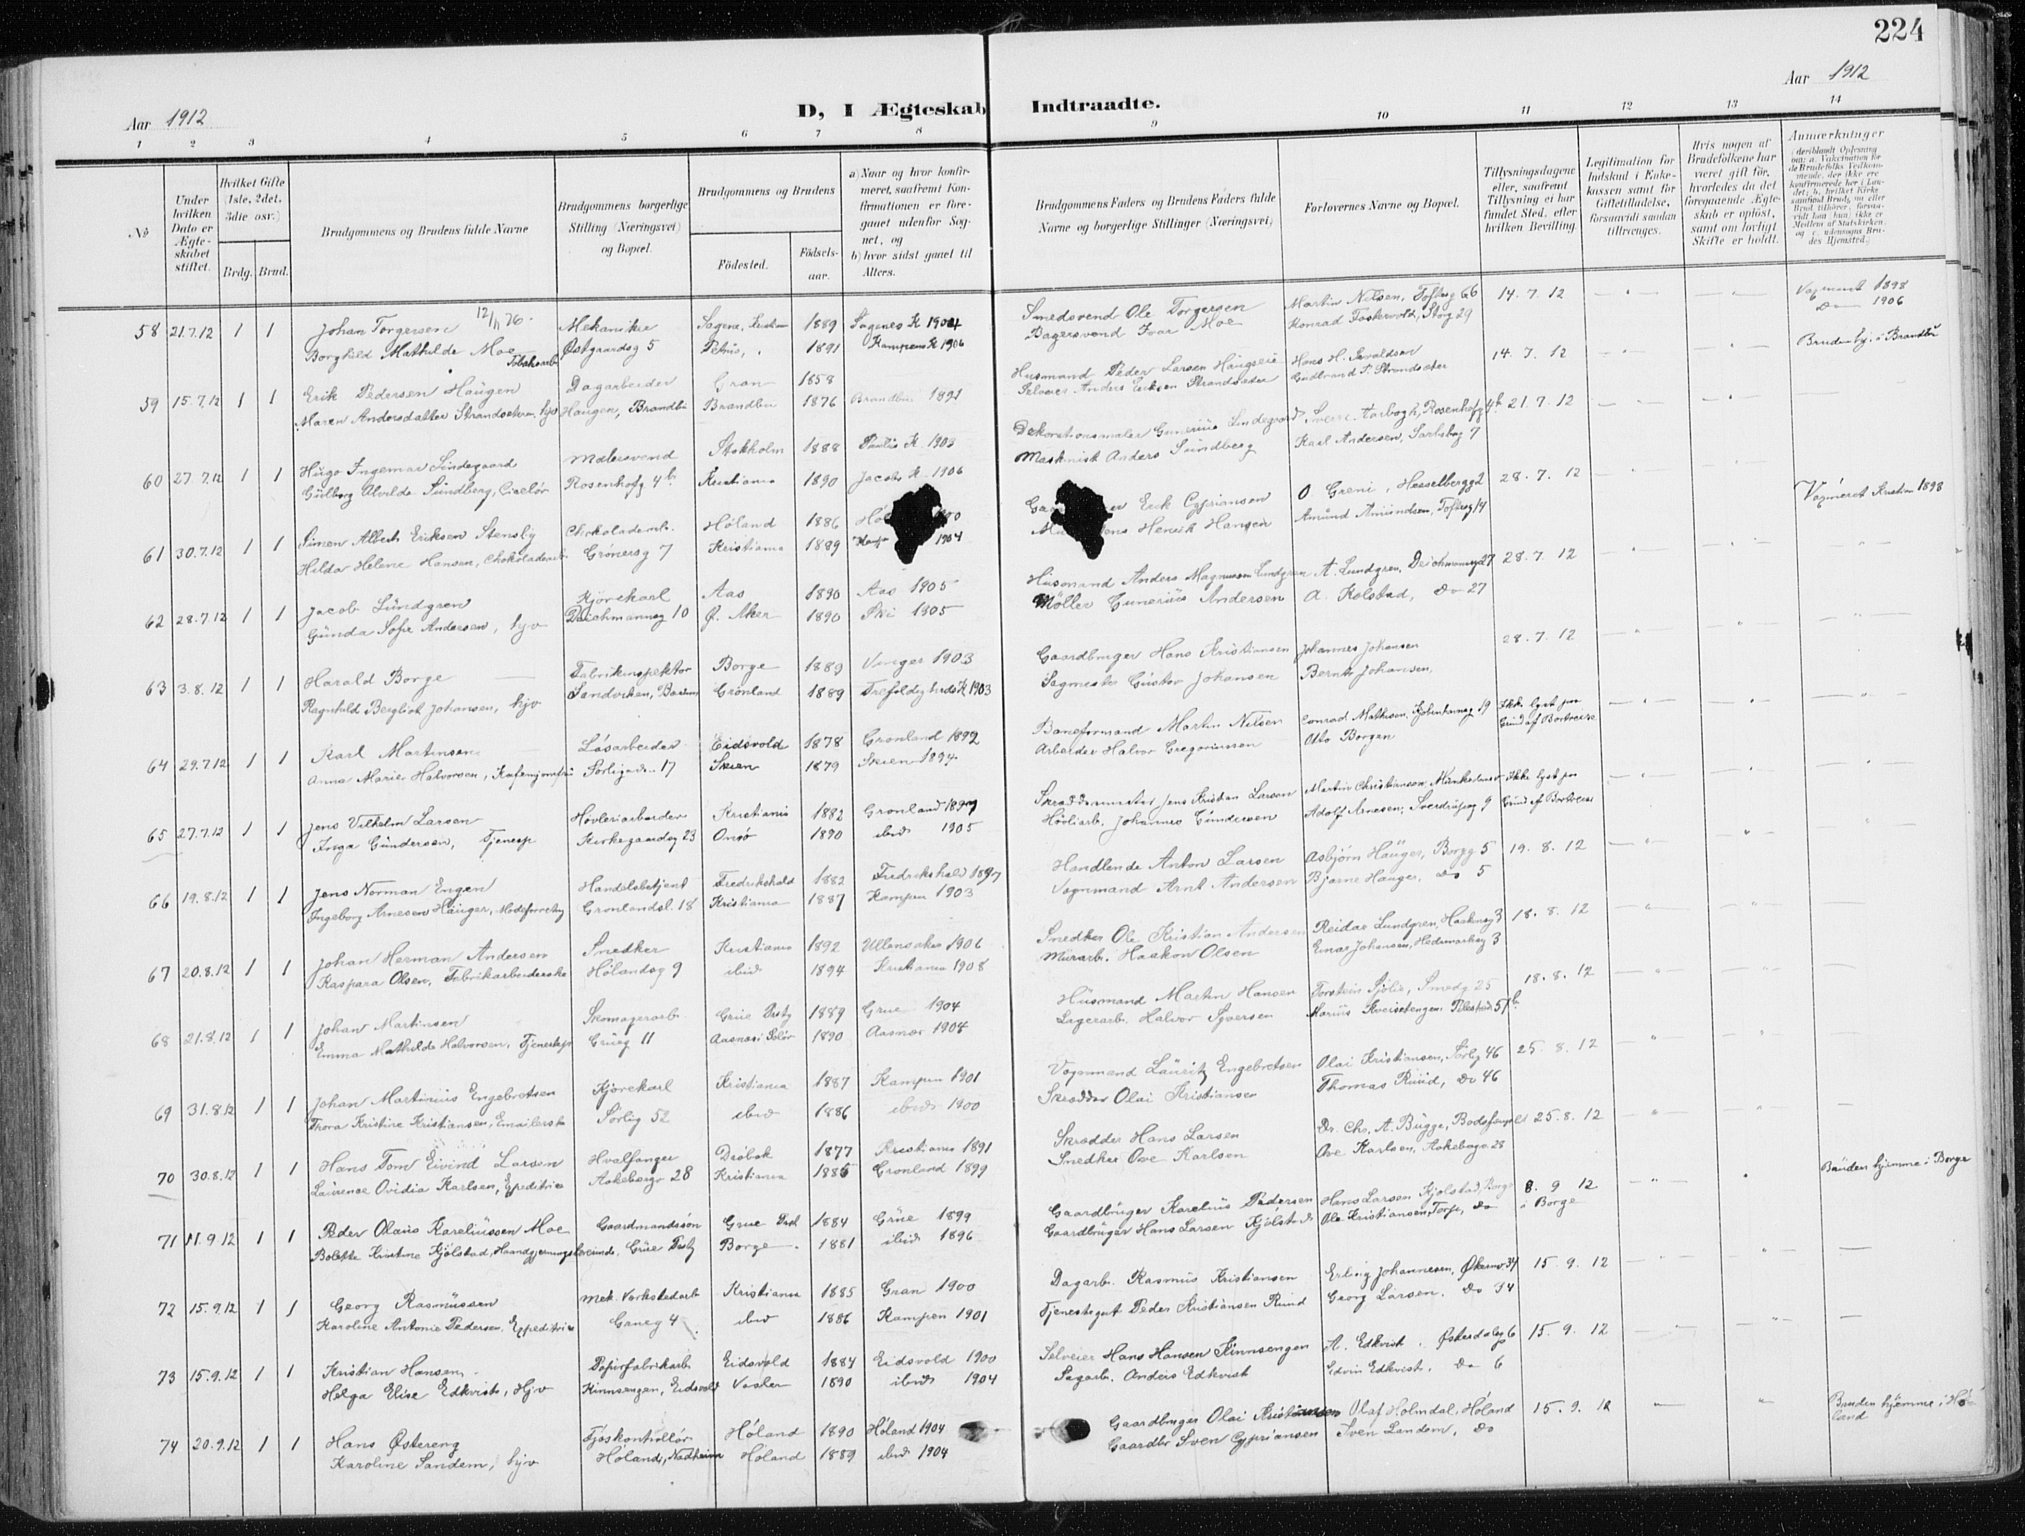 224
Aar 1912
D, I Ægteskab Indtraadte.
Aar 1912
1 2 3 4 5 6 7 8 9 10 11 12 13 14
No
Under hvilken Dato er Ægteskabet stiftet.
Hvilket Gifte (1ste, 2det, 3die osv.)
Brdg. Brud.
Brudgommens og Brudens fulde Navne
Brudgommens borgerlige Stilling (Næringsvei) og Bopæl.
Brudgommens og Brudens
Fødested. Fødselsaar.
a) Naar og hvor konfirmeret, saafremt Konfirmationen er foregaaet udenfor Sognet, og
b) hvor sidst gaaet til Alters.
Brudgommens Faders og Brudens Faders fulde Navne og borgerlige Stillinger (Næringsvei)
Forlovernes Navne og Bopæl.
Tillysningsdagene eller, saafremt Tillysning ei har fundet Sted, efter hvilken Bevilling.
Legitimation for Indskud i Enkekassen samt for Giftetilladelse, forsaavidt saadan tiltrænges.
Hvis nogen af Brudefolkene har været gift før, hvorledes da det foregaaende Ægteskab er opløst, samt om lovligt Skifte er holdt.
Anmærkninger
58 21.7.12 1 1 Johan Torgersen 12/11 76 Mekaniker Sagene, 1889 Sagenes K 1904 Smedsvend Ole Torgersen Martin Nilsen, Toftesg 66 14.7.12 Vaxineret 1898
Borghild Mathilde Moe Tobakarb Østgaardsg 5 Petrus, 1891 Kampens K 1906 Bagersvend Ivar Moe Konrad Fosterwold, Storg 29 Do 1906
59 15.7.12 1 1 Erik Pedersen Haugen Dagarbeider Gran 1858 Husmand Peder Larsen Haugseie Hans H. 14.7.12 Brudens hj. i Brandbu
Maren Andersdatter Strandsæteren, hjv Haugen, Brandbu Brandbu 1876 Brandbu 1891 Selveier Anders Eriksen Strandsæter Gudbrand P. Strandsæter
60 27.7.12 1 1 Hugo Ingemar Lindegaard Malersvend Stokholm 1888 Paulus K 1903 Dekorationsmaler Gunerius Lindegaard Sverre Aarbogh, Rosenhofg 4b 21.7.12
Gulborg Alvilde Sundberg, Ciselør Rosenhofg 4b Kristiania 1890 Jacobs K 1906 Maskinist Anders Sundberg Karl Andersen, Sarsborg 7
61 30.7.12 1 1 Simen Albert Eriksen Stensby Chokoladearb. Høland 1886 Erik Cypriansen O Greni, Hesselbergg 2 28.7.12 Vaxineret Kristiania 1898
Hilda Helene Hansen, Chokoladearb Gronersg 7 Kristiania 1889 1904 Henrik Hansen Amund Amundsen, Toftesg 14
62 28.7.12 1 1 Jacob Lundgren Kjørekarl Aas 1890 Aas 1905 Husmand Anders Magnussen Lundgren A. Lundgren, Deichmansg 27 28.7.12
Gunda Sofie Andersen, hjv Deichmansg 10 Ø. Aker 1890 Ski 1805 Møller Gunerius Andersen A. Kolstad, do 27
63 3.8.12 1 1 Harald Borge Fabrikinspektør Borge 1889 Vinger 1903 Gaardbruger Hans Kristiansen Johannes Johansen 28.7.12
Ragnhild Bergliot Johansen, hjv Sandviken, Bærum Grønland 1889 Trefoldighds K 1903 Sagmester Gustav Johansen Bernt Johansen
64 29.7.12 1 1 Karl Martinsen Løsarbeider Eidsvold 1878 Grønland 1892 Baneformand Martin Nilsen Conrad Mathisen, Kjøbenhavng 19 Ikke lyst paa
Anna Marie Halvorsen, Kafejomfru Sørligade 17 Skien 1879 Skien 1894 Arbeider Halvor Gregoriussen Otto Borgen Grund af Bortreise
65 27.7.12 1 1 Jens Vilhelm Larsen Høvleriarbeider Kristiania 1882 Grønland 1897 Skræddermester Jens Kristian Larsen Martin Christianson, Munkedamsv Ikke lyst paa
Inga Gundersen, Tjenesp Kirkegaardsg 23 Onsø 1890 ibid 1905 Høvleriarb. Johannes Gundersen Adolf Arnesen, Sverdrupsg 9 Grund af Bortreise
66 19.8.12 1 1 Jens Norman Engen Handelsbetjent Fredrikshald 1882 Fredrikshald 1897 Handlende Anton Larsen Asbjørn Hauger, Borgg 5 19.8.12
Ingeborg Arnesen Hauger, Modeforretng Grønlandsl. 18 Kristiania 1887 Kampen 1903 Vognmand Arnt Andersen Bjarne Hauger, do 5
67 20.8.12 1 1 Johan Herman Andersen Snedker Kristiania 1892 Ullensaker 1906 Snedker Ole Kristian Andersen Reidar Lundgren, Haakonsg 3 18.8.12
Kaspara Olsen, Fabrikarbeiderske Hølandsg 9 ibid 1894 Kristiania 1908 Murarb. Haakon Olsen Einar Johansen, Hedemarksg 3
68 21.8.12 1 1 Johan Martinsen Skomagerarb. Grue Prstg 1889 Grue 1904 Husmand Martin Hansen Torstein Sjølie, Smedg 25 18.8.12
Emma Mathilde Halvorsen, Tjenestep Grueg 11 Aasnæs i Solør 1890 Aasnæs 1904 Lagerarb. Halvor Syversen Marius Kveisetengen Pilestræd 57b
69 31.8.12 1 1 Johan Martinius Engebretsen Kjørekarl Kristiania 1887 Kampen 1901 Vognmand Lauritz Engebretsen Olai Kristiansen, Sørlig 46 25.8.12
Thora Kristine Kristiansen, Emailerske Sørlig 52 ibid 1886 ibid 1900 Skrædder Olai Kristiansen Thomas Ruud, do 46
70 30.8.12 1 1 Hans Tom Eivind Larsen Hvalfanger Drøbak 1877 Kristiania 1891 Skrædder Hans Larsen Dr. Chr. A. Bugge, Bodsfængsel 25.8.12
Laurence Ovidia Karlsen, Expeditrice Aakebergv 28 Kristiania 1885 Grønland 1899 Snedker Ove Karlsen Ove Karlsen, Aakebergv. 28
71 11.9.12 1 1 Peder Olaus Kareliussen Moe Gaardmandssøn Grue Prst 1884 Grue 1899 Gaardbruger Karelius Pedersen Hans Larsen Kjølstad, Borge 8.9 12 Bruden hjemme i Borge
Bolette Kristine Kjølstad, Haandgjerningslærerinde, Grue Prstg Borge 1881 ibid 1896 Gaardbruger Hans Larsen Kjølstad Ole Kristiansen, Torp, do i Borge
72 15.9.12 1 1 Georg Rasmussen Mek Værkstedarb Kristiania 1885 Gran 1900 Dagarb. Rasmus Kristiansen Erling Johannesen, Økernv 34 15.9.12
Karoline Antonie Pedersen, Expeditrice Grueg 4 ibid 1886 Kampen 1901 Tjenestegut Peder Kristiansen Ruud Georg Larsen. Do 34
73 15.9.12 1 1 Kristian Hansen Papirfabrikarb Eidsvold 1884 Eidsvold 1900 Selveier Hans Hansen Finnsengen A. Edkvist. Østerdalsg 6 15.9.12
Helga Elise Edkvist, Hjv Finnsengen, Eidsvold Vaaler 1890 ibid 1904 Sagarb. Anders Edkvist Edvin Edkvist. Do 6
74 20.9.12 1 1 Hans Østereng Fjøskontrollør Høland 1890 Høland 1904 Gaardbruger Olai Kristiansen Olaf Holmdal, Høland 15.9.12 Bruden hjemme i Høland
Karoline Sandem, hjv Høland, Nadheim Høland 1889 ibid 1904 Gaardbr Sven Cypriansen Sven Landem, Do